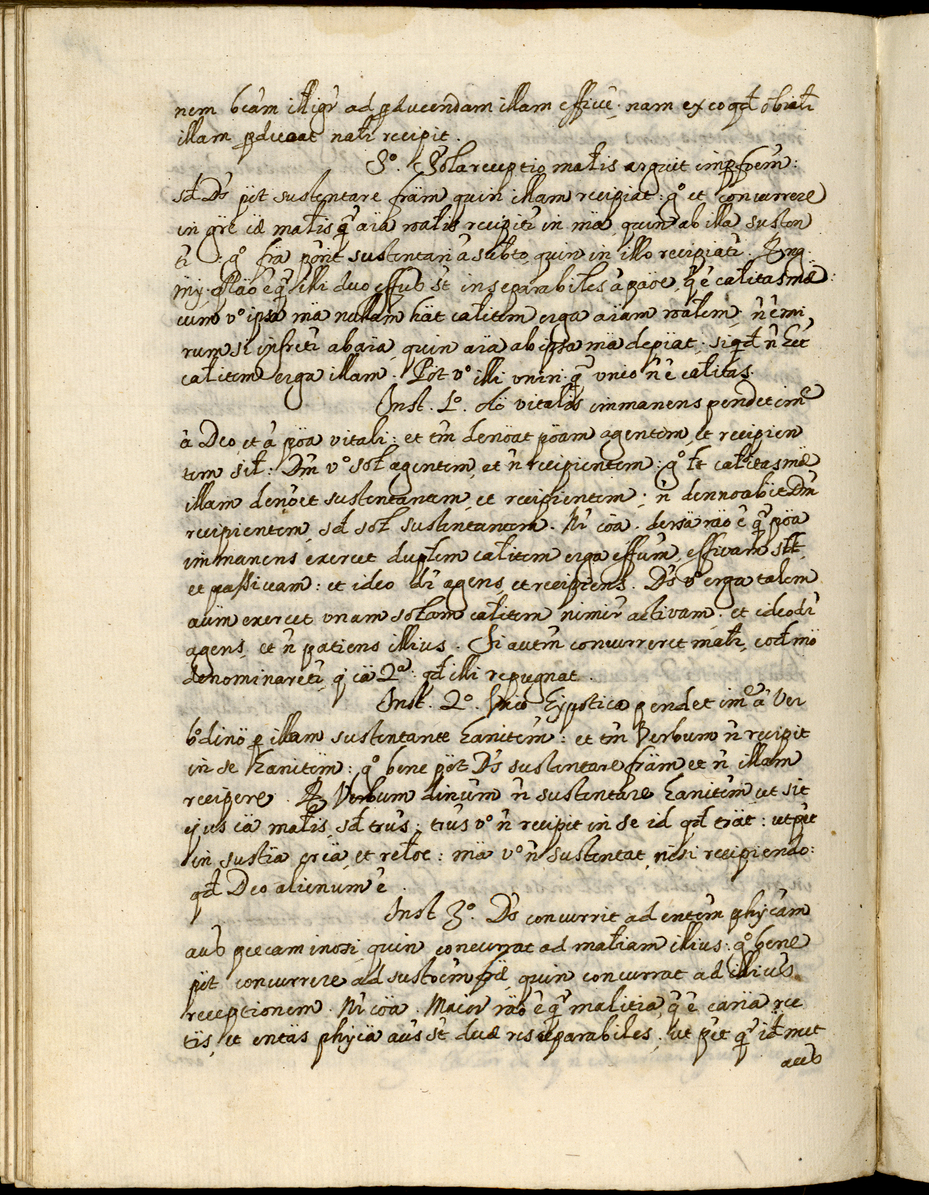 nem bcam illigr ad pducendam illam effice. nam ex eo qd obiali
illam pducat nali recipit.
3º. Sola receptio malis arguit impfoem:
sd Ds pot sustentare fram quin illam recipiat: gº et concurrere
in gre cæ malis qr aia roalis recipitr in ma quin ab illa susten
tr: gº fra pont sustentari a subto, quin in illo recipiatr. Rng.
mj. rao e qr illi duo effus st inseparabiles a paoe, q e calitas mæ:
cum vº ipsa ma nullam hat calitem erga aiam roalem, n e mi
rum si infretr ab aia, quin aia ab ipsa ma depiat; siqd n het
calitem erga illam. Pot vº illi uniri qr unio n e calitas.
Inst. 1º. Ao vitalis immanens pendet ime
à Deo, et à poa vitali: et tm denoat poam agentem, et recipien
tem sil: Dm vº sol agentem, et n recipientem: gº lt calitas mæ
illam denoet sustentanam, et recipientem; n dennoabit Dm
recipientem, sd sol sustentantem. Nr coa. dersa rao e qr poa
immanens exercet duplem calitem erga effum, effivam slt,
et passivam: et ideo dr agens, et recipiens. Ds vº erga talem
aum exercet unam solam calitem nimir activam. et ideo dr
agens, et n patiens illius. Si autm concurreret mali, eod mo
denominaretr, q ca 2a. qd illi repugnat.
Inst. 2º. Unio Hypostica pendet ime à Ver
bº dino p illam sustentante hanitem: et tm Verbum n recipit
in se hanitem: gº bene pot Ds sustentare fram et n illam
recipere. R. Verbum dinum n sustentare hanitem ut sit
ejus ca malis, sd trus; trus vº n recipit in se id qd trat: ut pet
in sustia, crea, et reloe: ma vº n sustentat, nisi recipiendo:
qd Deo alienum e.
Inst. 3º. Ds concurrit ad entem phycam
aus pecaminosi, quin concurrat ad maliam illius: gº bene
pot concurrere ad sustoem fræ, quin concurrat ad illius
receptionem. Nr coa. Maior rao e qr malitia, q e cariia rec
tis, et entas phyca aus st duæ res separabiles, ut pet qr id met
aus